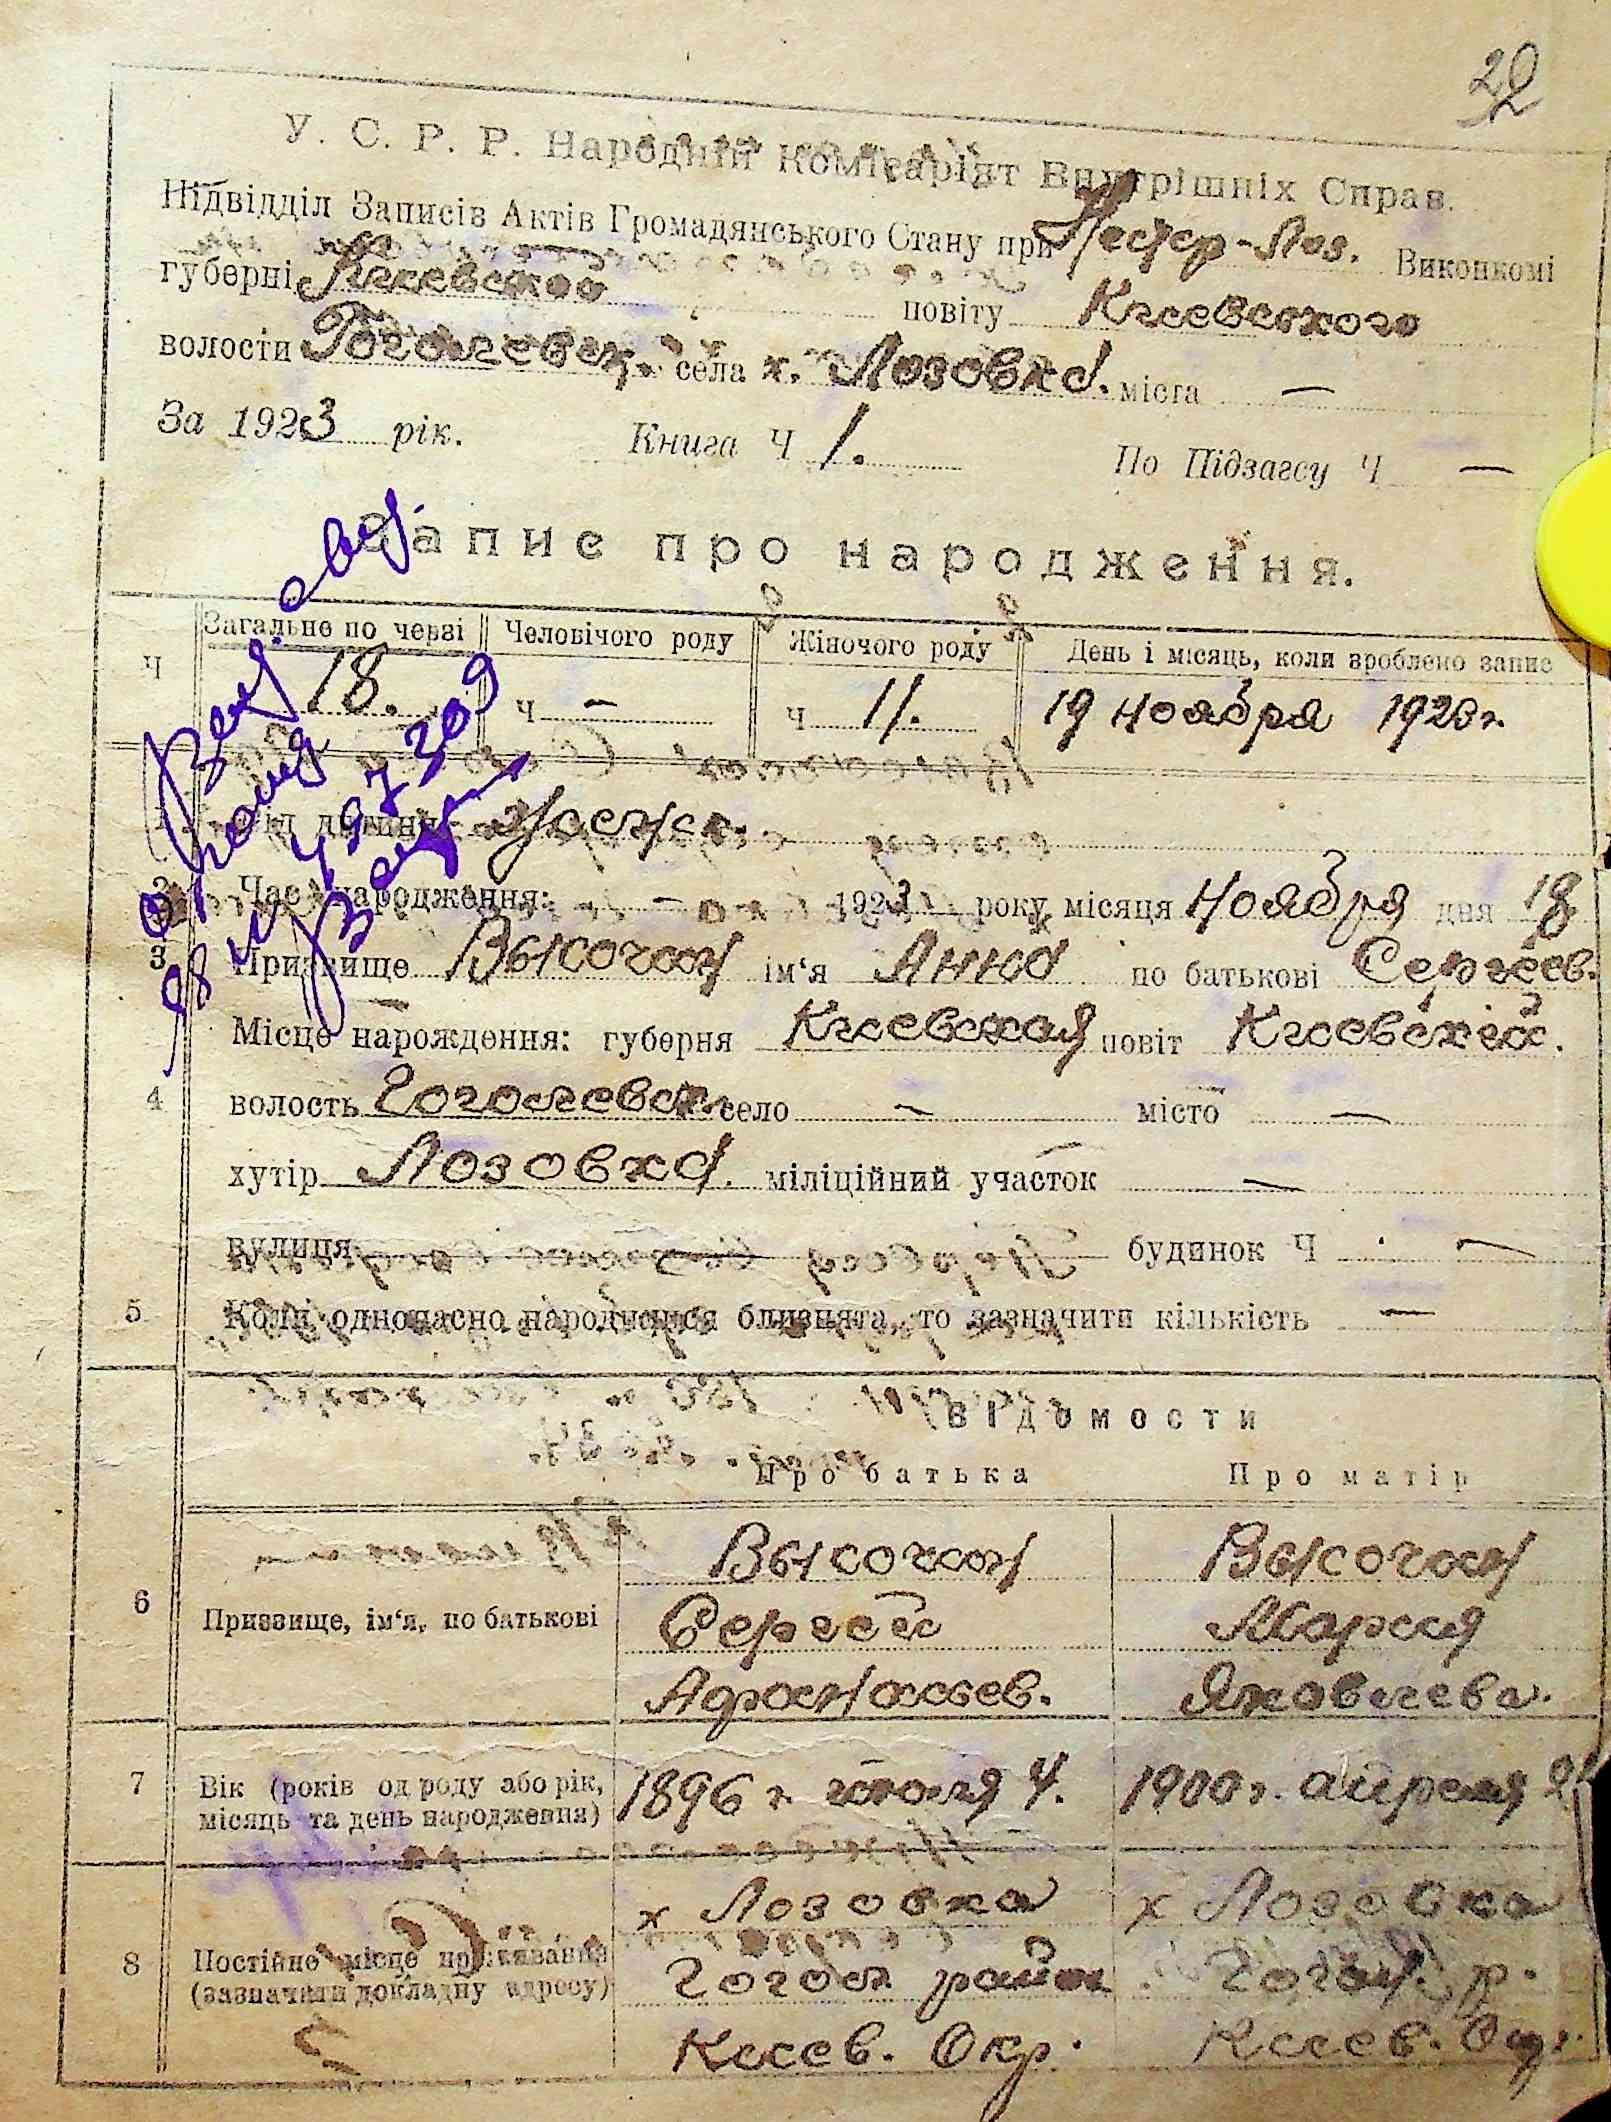 22
У. С. Р. Р. Народній Комісаріят Внутрішніх Справ.
Підвідділ Записів Актів Громадянського Стану при Нестер-Лоз. Виконкомі
губерні Киевской повіту Киевского
волости Гоголевск. села х. Лозовка. міста —
За 1923 рік. Книга Ч 1. По Підзагсу Ч —
Запис про народження.
Ч Загальне по черзі Человічого роду Жіночого роду День і місяць, коли зроблено запис
18. Ч — Ч 11. 19 ноября 1923 г.
дитини женск.
2 Час народження: — 1923 року місяця ноября дня 18
3 Призвище Высочан ім‘я Анна по батькові Сергеев.
Місце нарождення: губерня Киевская повіт Киевский.
4 волость Гоголевск. село — місто —
хутір Лозовка. міліційний участок —
вулиця — будинок Ч —
5 Коли одночасно народилися близнята, то зазначити кількість —
ВІДОМОСТИ
Про батька Про матір
Высочан Высочан
6 Призвище, ім‘я, по батькові Сергей Мария
Афанасьев. Яковлева.
7 Вік (років од роду або рік, 1896 г. июля 4. 1900 г. апреля
місяць та день народження)
х Лозовка х Лозовка
8 Постійне місце проживання Гогол район Гогол. р.
(зазначити докладну адресу)
Киев. Окр. Киев. Окр.